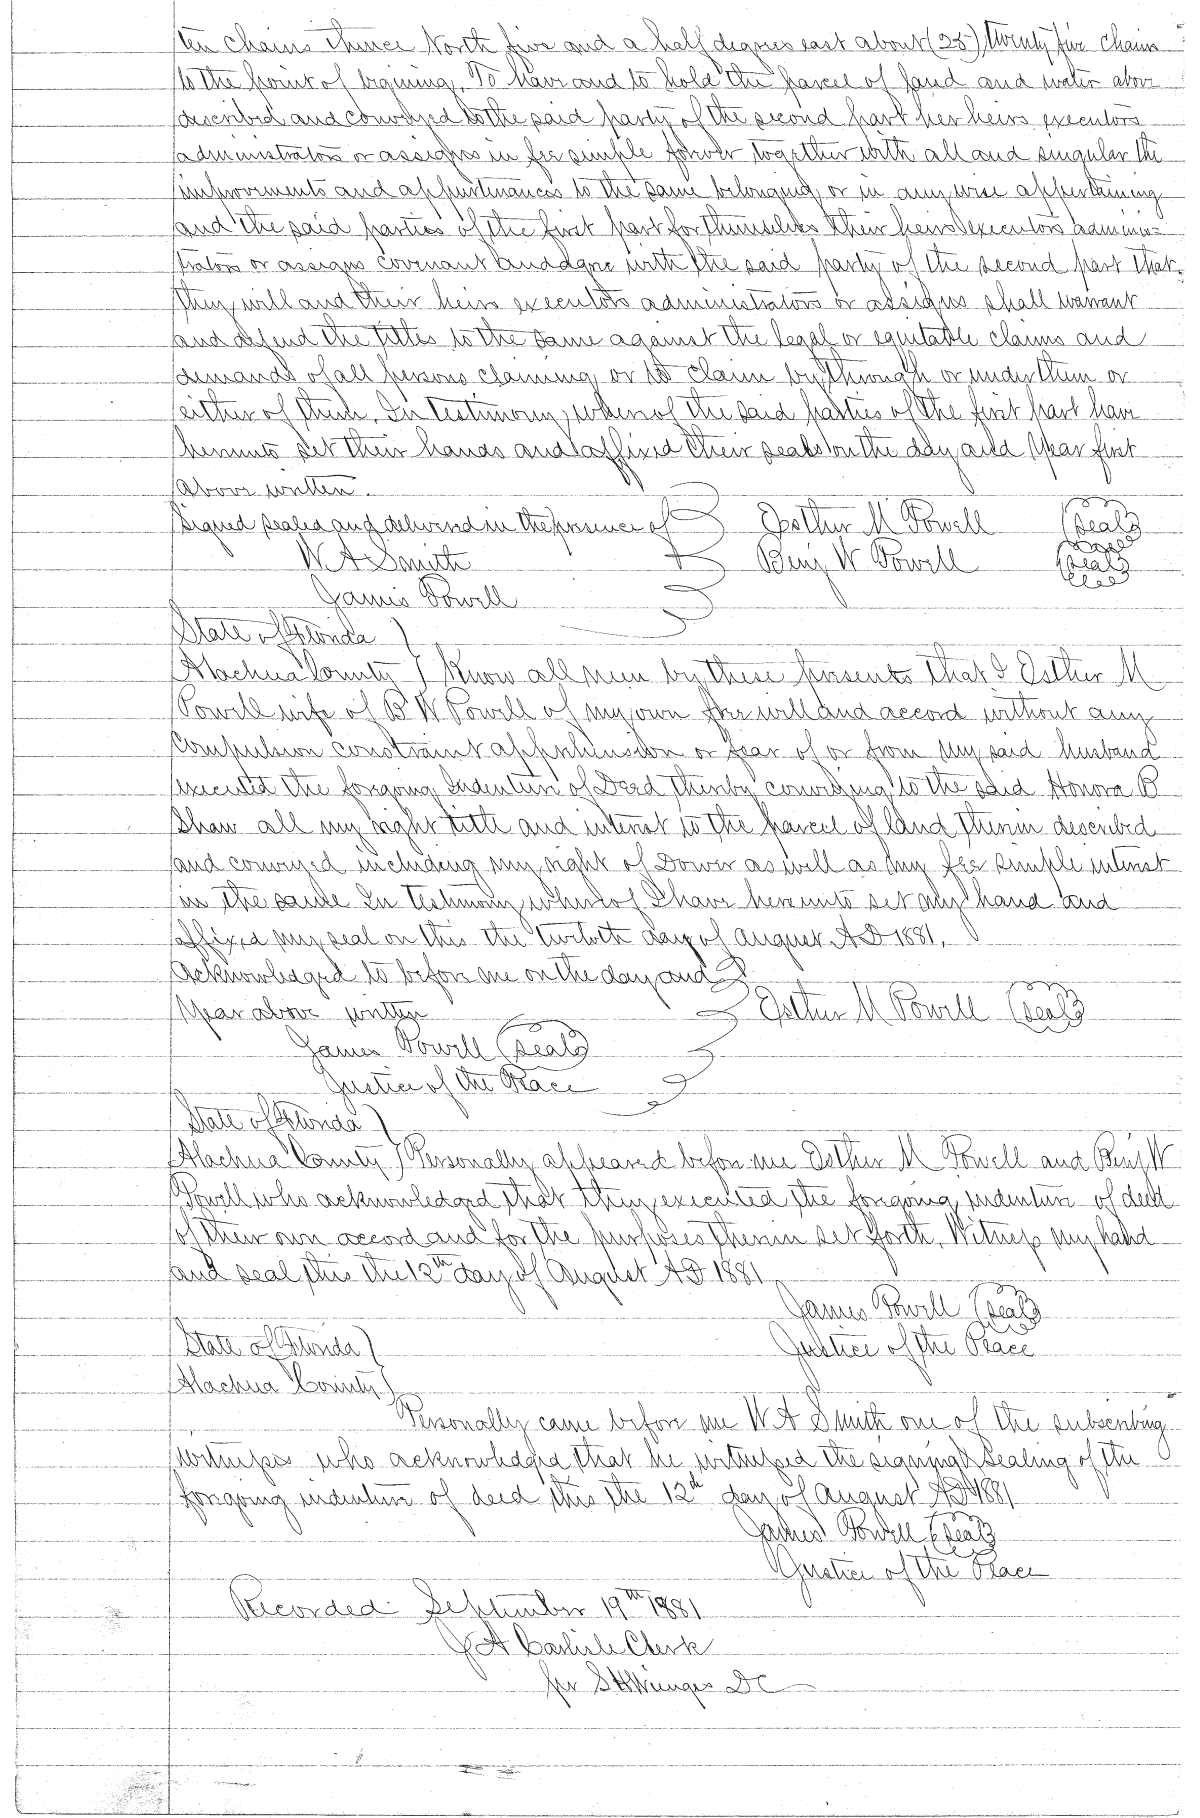 ten chains thence North five and a half degrees east about (25) twenty five chains
to the point of begining. To have and to hold the parcel of land and water above
described and conveyed to the said party of the second part her heirs executors
administrators or assigns in fee simple forever together with all and singular the
improvements and appurtenances to the same belonging or in any wise appertaining
and the said parties of the first part for themselves their heirs executors adminis=
trators or assigns covenant and agree with the said party of the second part that
they will and their heirs executors administrators or assigns shall warrant
and defend the titles to the same against the legal or equitable claims and
demands of all persons claiming or to claim by through or under them or
either of them. In testimony whereof the said parties of the first part have
hereunto set their hands and affixed their seals on the day and year first
above written.
Signed sealed and delivered in the presence of Esther M Powell (seal)
W A Smith Benj W Powell (seal)
James Powell
State of Florida )
Alachua County ) Know all men by these presents that I Esther M
Powell wife of B W Powell of my own free will and accord without any
compulsion constraint apprehension or fear of or from my said husband
executed the forgoing Indenture of Deed thereby conveying to the said Honora B
Shaw all my right title and interest to the parcel of land therein described
and conveyed including my right of Dower as well as my fee simple interest
in the same In testimony whereof I have hereunto set my hand and
affixed my seal on this the twelfth day of August AD 1881.
Acknowledged to before me on the day and
year above written Esther M Powell (seal)
James Powell (seal)
Justice of the Peace
State of Florida )
Alachua County ) Personally appeared before me Esther M Powell and Benj W
Powell who acknowledged that they executed the forgoing indenture of deed
of their own accord and for the purposes therein set forth. Witness my hand
and seal this the 12th day of August AD 1881
James Powell (seal)
State of Florida ) Justice of the Peace
Alachua County )
Personally came before me W A Smith one of the subscribing
witnesses who acknowledged that he witnessed the signing & sealing of the
forgoing indenture of deed this the 12th day of August AD 1881
James Powell (seal)
Justice of the Peace
Recorded September 19th 1881
J A Carlisle Clerk
per DC